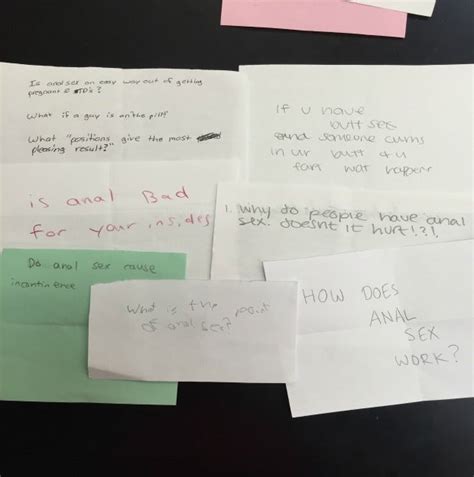 Is anal sex an easy way out of getting
pregnant & STD's?
What if a guy is on the pill?
What "positions give the most
pleasing result?"
If u have
butt sex
and someone cums
in ur butt & u
fart wat happen
is anal Bad
for your insides
1. why do people have anal
sex. doesnt it hurt!?!
Do anal sex cause
incontinence
What is the point
of anal sex?
HOW DOES
ANAL
SEX
WORK?